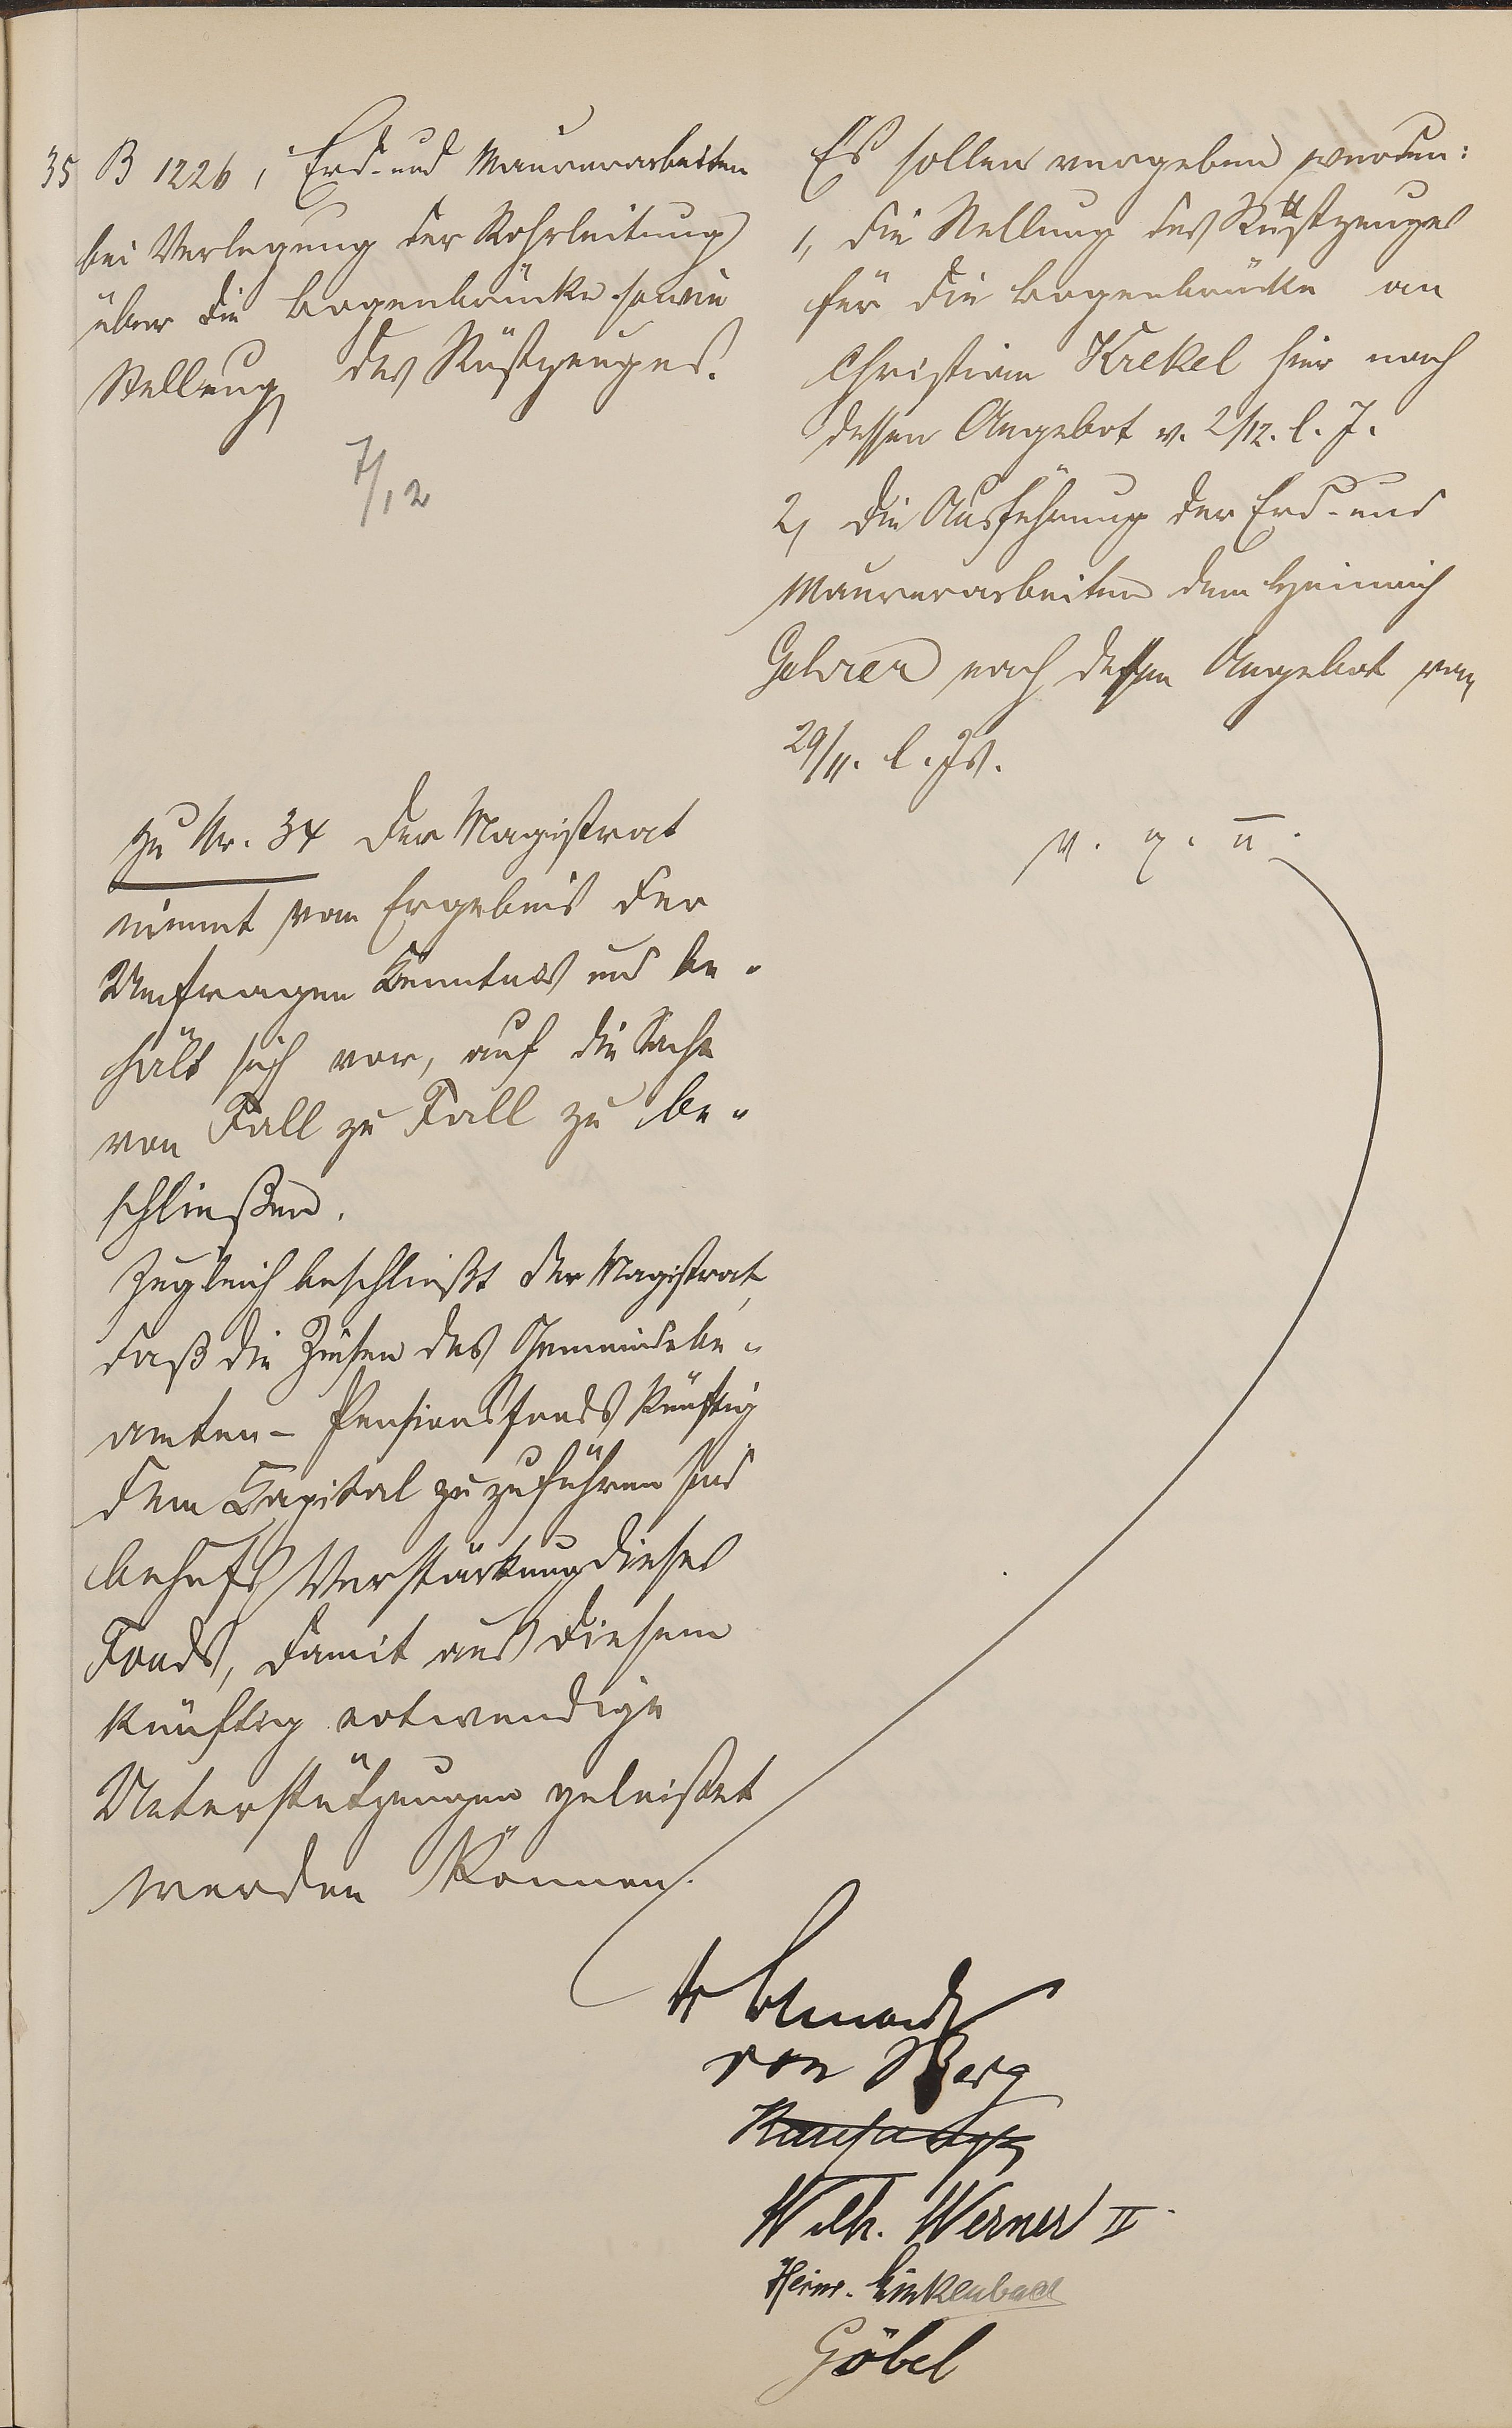 35 B 1226, Erd- und Maurerarbeiten
bei Verlegung der Rohrleitung
über die Bogenbrücke sowie
Stellung des Rüstzeuges.
7/12
Es sollen vergeben werden:
1, die Stellung des Rüstzeuges
für die Bogenbrücke an
Christian Krekel hier nach
dessen Angebot v. 2/12. l. J.
2, die Ausführung der Erd- und
Maurerarbeiten dem Heinrich
Gohrer nach dessen Angebot vom
29/11. l. Js.
v. g. u.
Zu Nr. 34 Der Magistrat
nimmt vom Ergebnis der
Umfragen Kenntnis und be-
hält sich vor, auf die Sache
von Fall zu Fall zu be-
schließen.
Zugleich beschließt der Magistrat,
daß die Zinsen des Gemeindebe-
amten-Pensionsfonds künftig
dem Kapital zuzuführen sind
behufs Verstärkung dieses
Fonds, damit aus diesem
künftig notwendige
Unterstützungen geleistet
werden können.
von Berg
Wilh. Werner II
Heinr. Linkenbach
Göbel